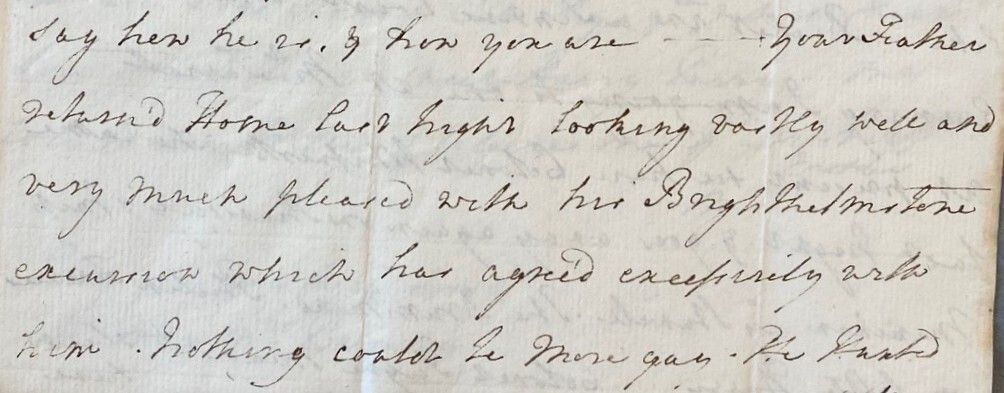 say how he is. & how you are — Your Father
return'd Home last night looking vastly well and
very much pleased with his Brighthelmstone
excursion which has agree'd excessively with
him. Nothing could be more gay. He Hunted